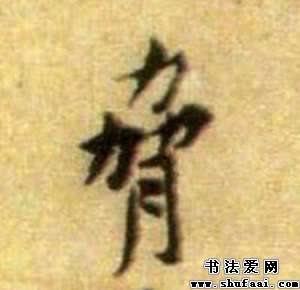 脅
书法爱网
www.shufaai.com